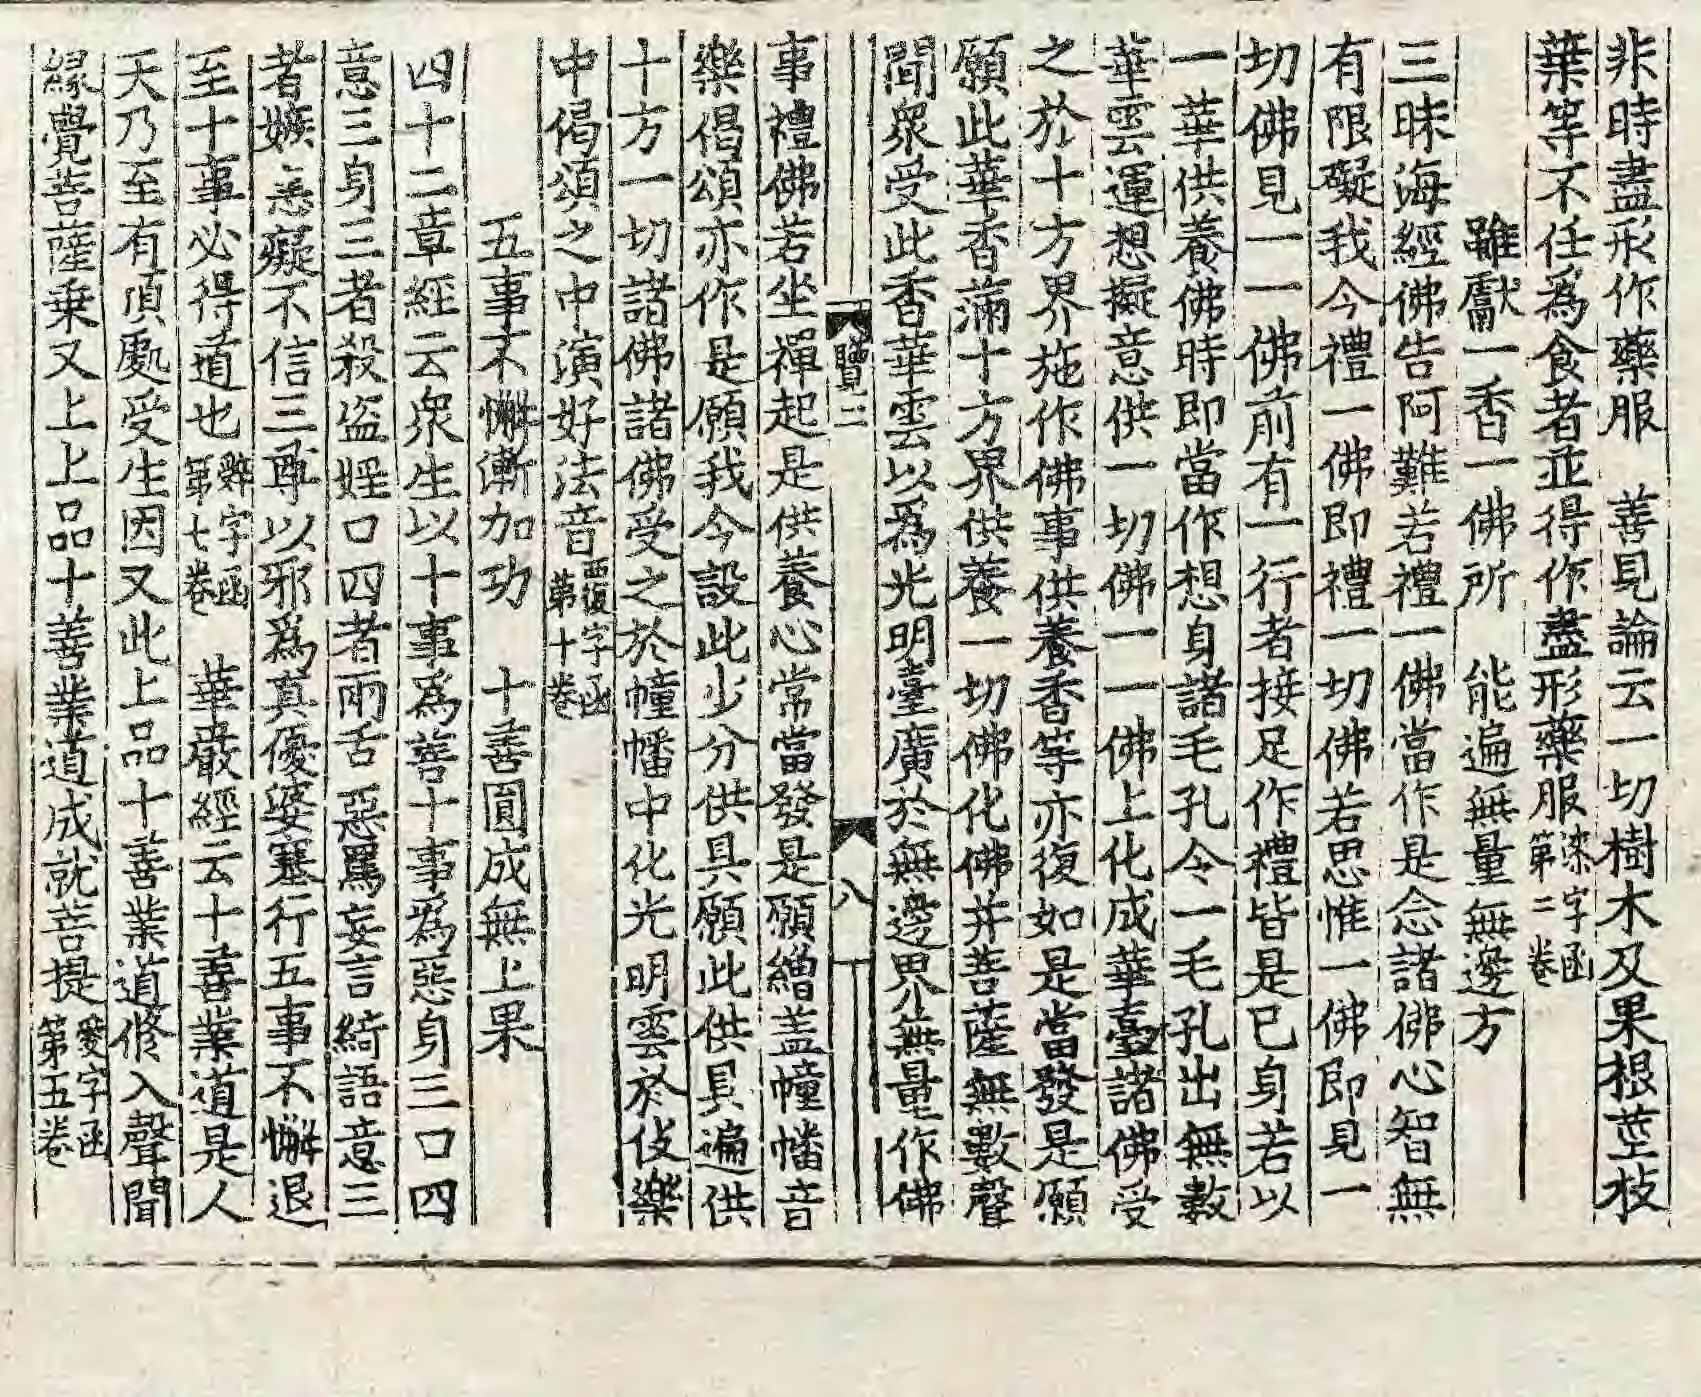 非時盡形作藥服　善見論云一切樹木及果根莖枝
葉等不任爲食者並得作盡形藥服染字函第二卷
雖獻一香一佛所　能遍無量無邊方
三昧海經佛告阿難若禮一佛當作是念諸佛心智無
有限礙我今禮一佛即禮一切佛若思惟一佛即見一
切佛見一一佛前有一行者接足作禮皆是已身若以
一華供養佛時即當作想身諸毛孔令一毛孔出無數
華雲運想擬意供一切佛一一佛上化成華臺諸佛受
之於十方界施作佛事供養香等亦復如是當發是願
願此華香滿十方界供養一切佛化佛并菩薩無數聲
聞衆受此香華雲以爲光明臺廣於無邊界無量作佛
覽三　八
事禮佛若坐禪起是供養心常當發是願繒盖幢幡音
樂偈頌亦作是願我今設此少分供具願此供具遍供
十方一切諸佛諸佛受之於幢幡中化光明雲於伎樂
中偈頌之中演好法音西復字函第十卷
五事不懈漸加功　十善圓成無上果
四十二章經云衆生以十事爲善十事爲惡身三口四
意三身三者殺盜婬口四者兩舌惡罵妄言綺語意三
者嫉恚癡不信三尊以邪爲真優婆塞行五事不懈退
至十事必得道也辭字函第七卷　華嚴經云十善業道是人
天乃至有頂處受生因又此上品十善業道修入聲聞
緣覺菩薩乗又上上品十善業道成就菩提愛字函第五卷